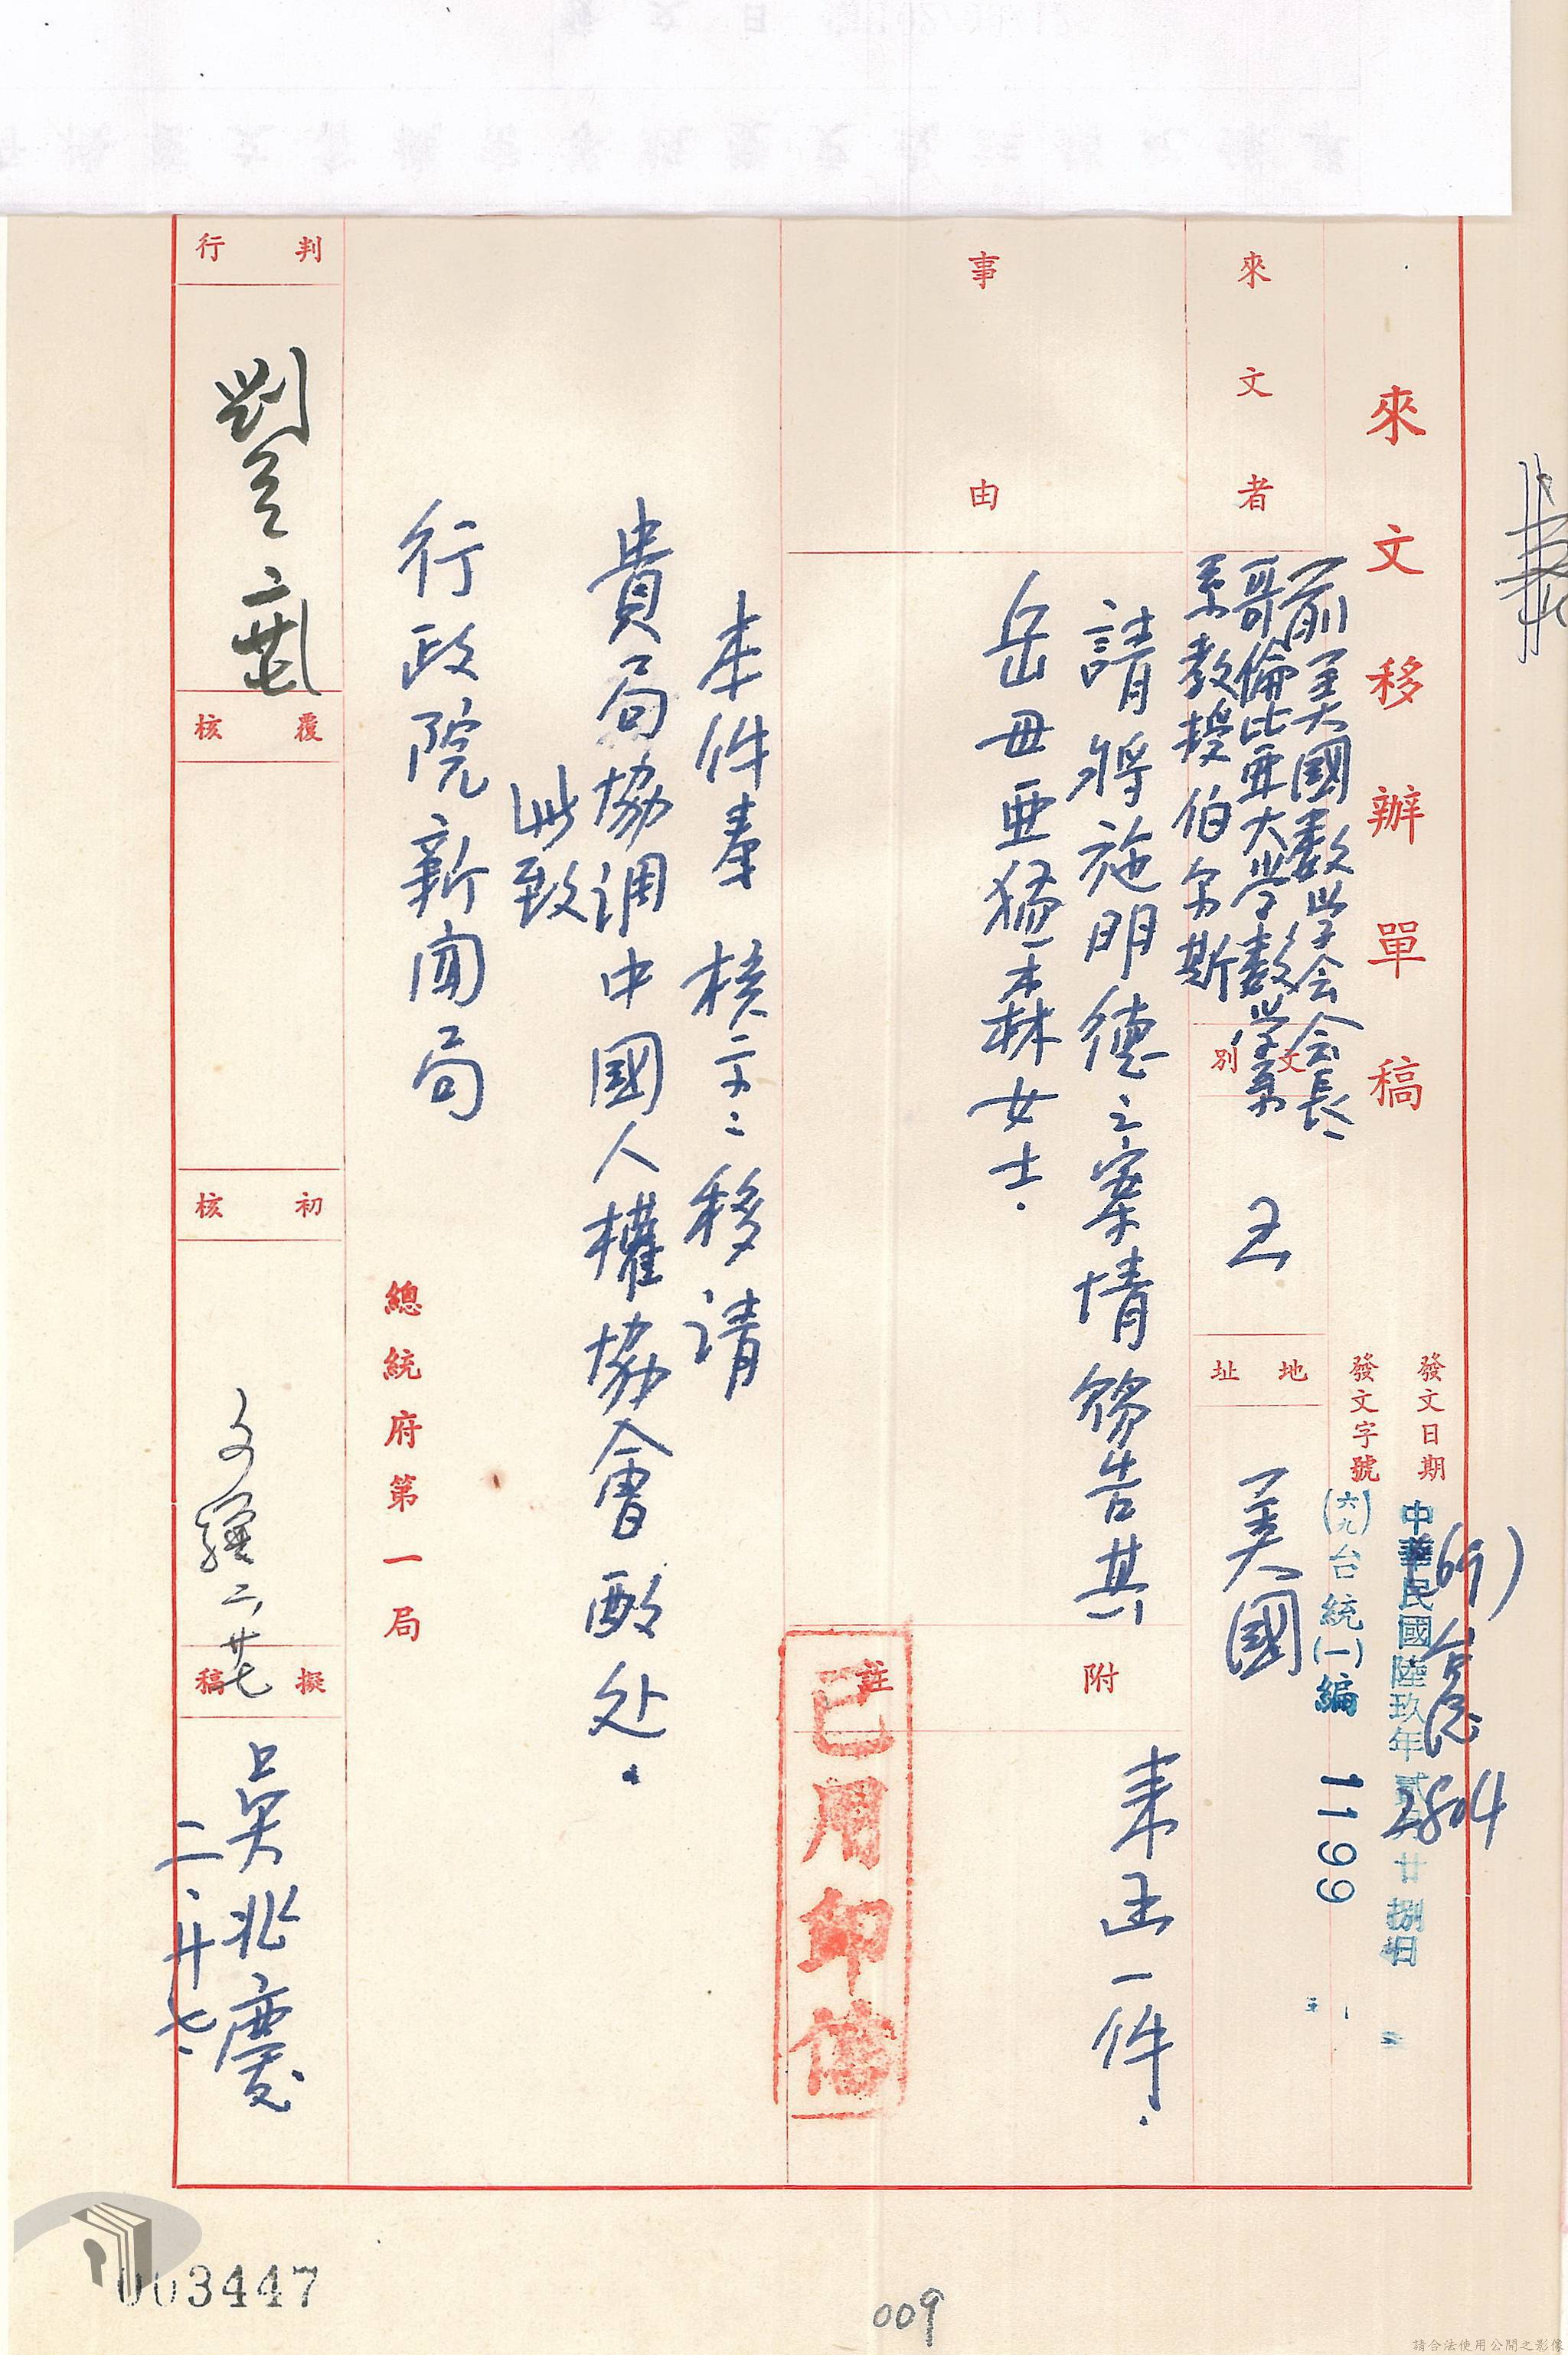 來文移辦單稿
發文日期
中華民國陸玖年貳月廿捌日
發文字號
(六九)台統(一)編 1199
(69)台
2804
來文者
前美國数学会会長
哥倫比亜大学数学系
系教授伯尔斯
文別
地址
美國
事由
請將施明德之案情賜告其
岳母亜
森女士.
附註
来函一件.
已用印信
本件奉 核示:移请
貴局協调中國人權協會酌处.
此致
行政院新聞局
總統府第一局
判行
覆核
初核
二、廿七
擬稿
吳兆慶
二.廿七.
003447
009
請合法使用公開之影像